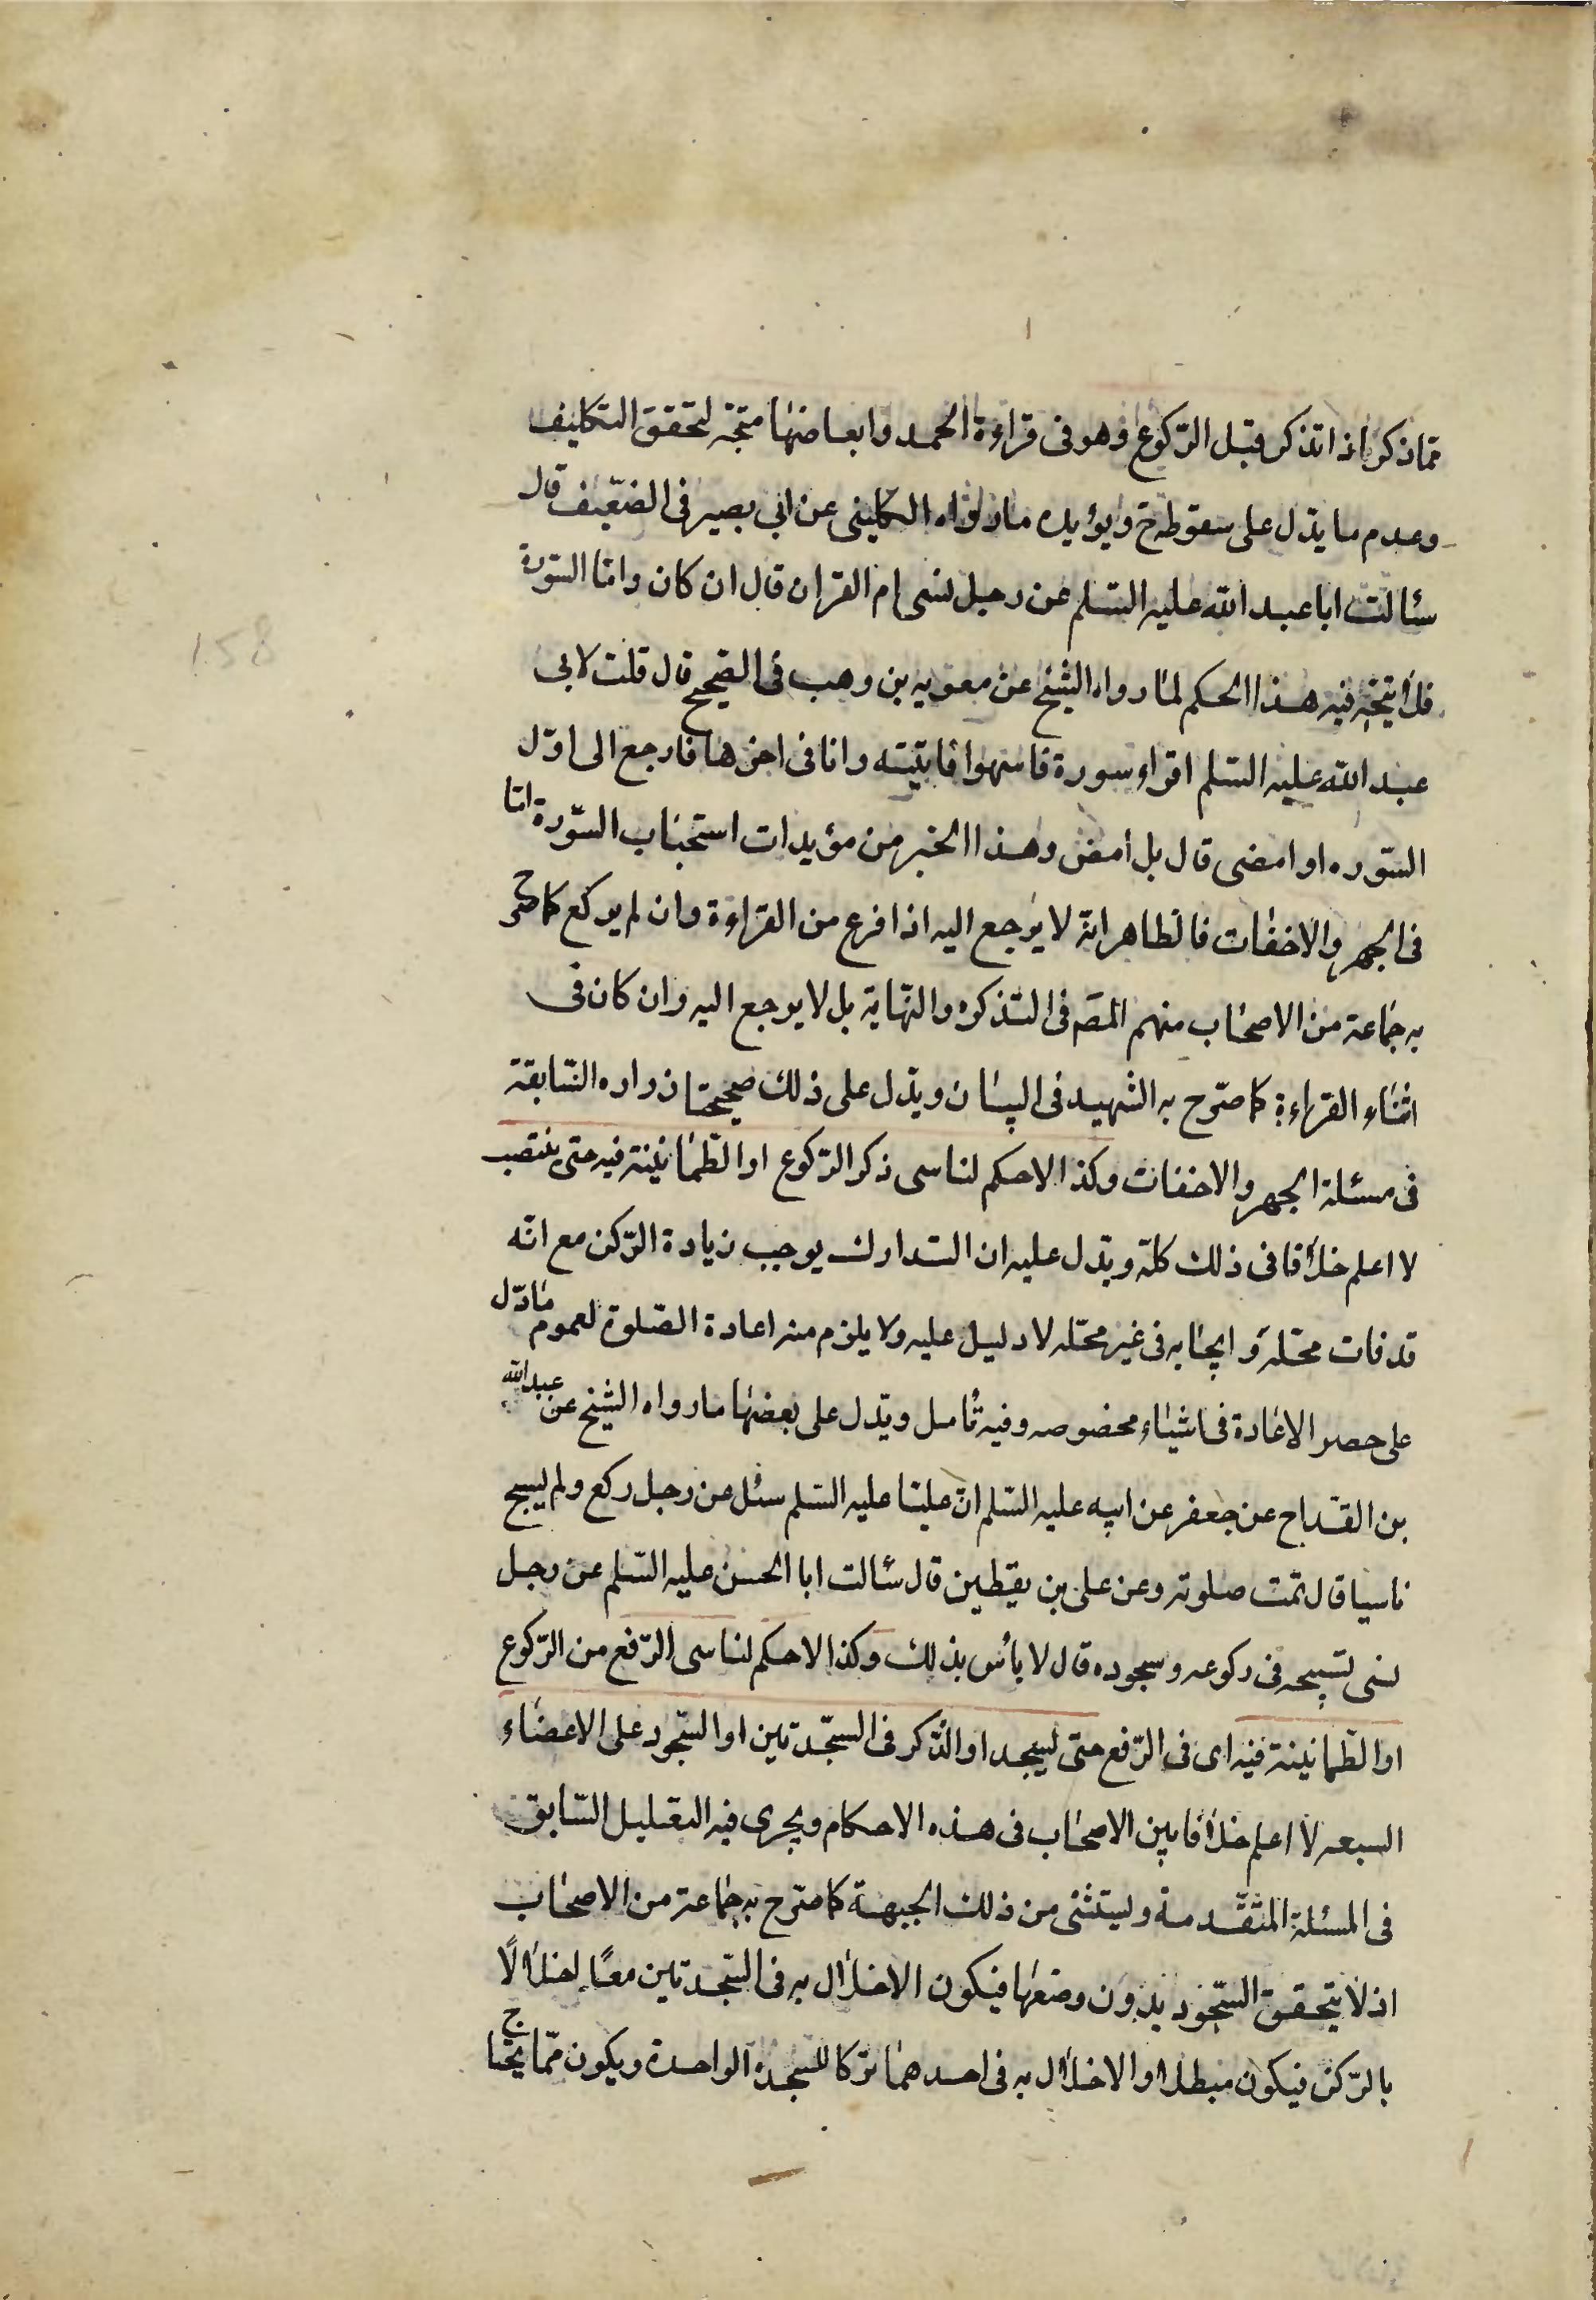 مماذكر اذا تذكر قبل الركوع وهو فى قراءة الحمد وابعاضها متجه لتحقق التكليف
وعدم ما يدل على سقوطه ح ويؤيده ما رواه الكلينى عن ابى بصير فى الضعيف قال
سئالت ابا عبد الله عليه السلم عن رجل نسى ام القران قال ان كان واما السورة
فلا يتجه فيه هذا الحكم لما رواه الشيخ عن معويه بن وهب فى الصحيح قال قلت لابى
عبد الله عليه السلم اقراء سورة فاسهوا فانتبه وانا فى اخرها فارجع الى اول
السوره او امضى قال بل امض وهذا الخبر من مؤيدات استحباب السورة اما
فى الجهر والاخفات فالظاهر انه لا يرجع اليه اذا فرغ من القراءة وان لم يركع كما صرح
به جماعة من الاصحاب منهم المصَ فى التذكره والنهاية بل لا يرجع اليه وان كان فى
اثناء القراءة كما صرح به الشهيد فى البيان ويدل على ذلك صحيحتا زراره السابقة
فى مسئلة الجهر والاخفات وكذا لاحكم لناسى ذكر الركوع او الطمانينة فيه حتى ينتصب
لا اعلم خلافا فى ذلك كله ويدل عليه ان التدارك يوجب زيادة الركن مع انه
قد فات محله وايجابه فى غير محله لا دليل عليه ولا يلزم منه اعادة الصلوة لعموم ما دل
على حصر الاعادة فى اشياء مخصوصه وفيه تامل ويدل على بعضها ما رواه الشيخ عن عبد الله
بن القداح عن جعفر عن ابيه عليه السلم ان عليا عليه السلم سئل عن رجل ركع ولم يسبح
ناسيا قال تمت صلوته وعن على بن يقطين قال سئالت ابا الحسن عليه السلم عن رجل
نسى تسبيحه فى ركوعه وسجوده قال لا باس بذلك وكذا لاحكم لناسى الرفع من الركوع
او الطمانينة فيه اى فى الرفع حتى يسجد او الذكر فى السجدتين او السجود على الاعضاء
السبعه لا اعلم خلافا بين الاصحاب فى هذه الاحكام ويجرى فيه التعليل السابق
فى المسئلة المتقدمة ويستثنى من ذلك الجبهة كما صرح به جماعة من الاصحاب
اذ لا يتحقق السجود بدون وضعها فيكون الاخلال به فى السجدتين معًا اخلالًا
بالركن فيكون مبطلا والاخلال به فى احدهما تركا للسجدة الواحدة ويكون مما يحتاج
158